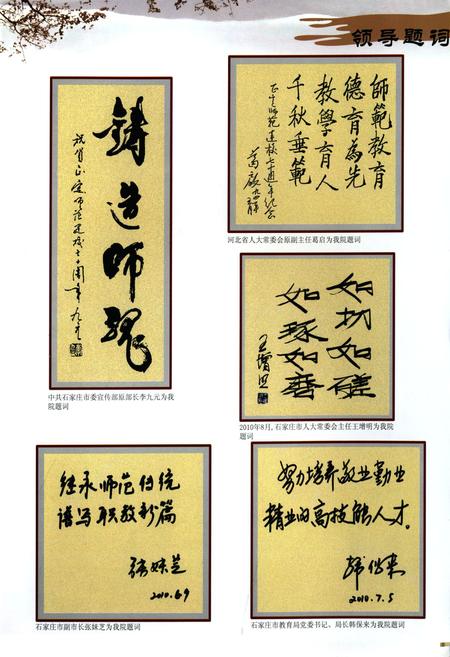 领导题词
铸造师魂
祝贺正定师范建校七十周年 九元
中共石家庄市委宣传部原部长李九元为我
院题词
師範教育
德育為先
教學育人
千秋垂範
正定师范建校七十週年纪念
葛启
河北省人大常委会原副主任葛启为我院题词
如切如磋
如琢如磨
王增明
2010年8月,石家庄市人大常委会主任王增明为我院
题词
继承师范传统
谱写职教新篇
张妹芝
2010.6.9
石家庄市副市长张妹芝为我院题词
努力培养敬业勤业
精业的高技能人才。
韩保来
2010.7.5
石家庄市教育局党委书记、局长韩保来为我院题词